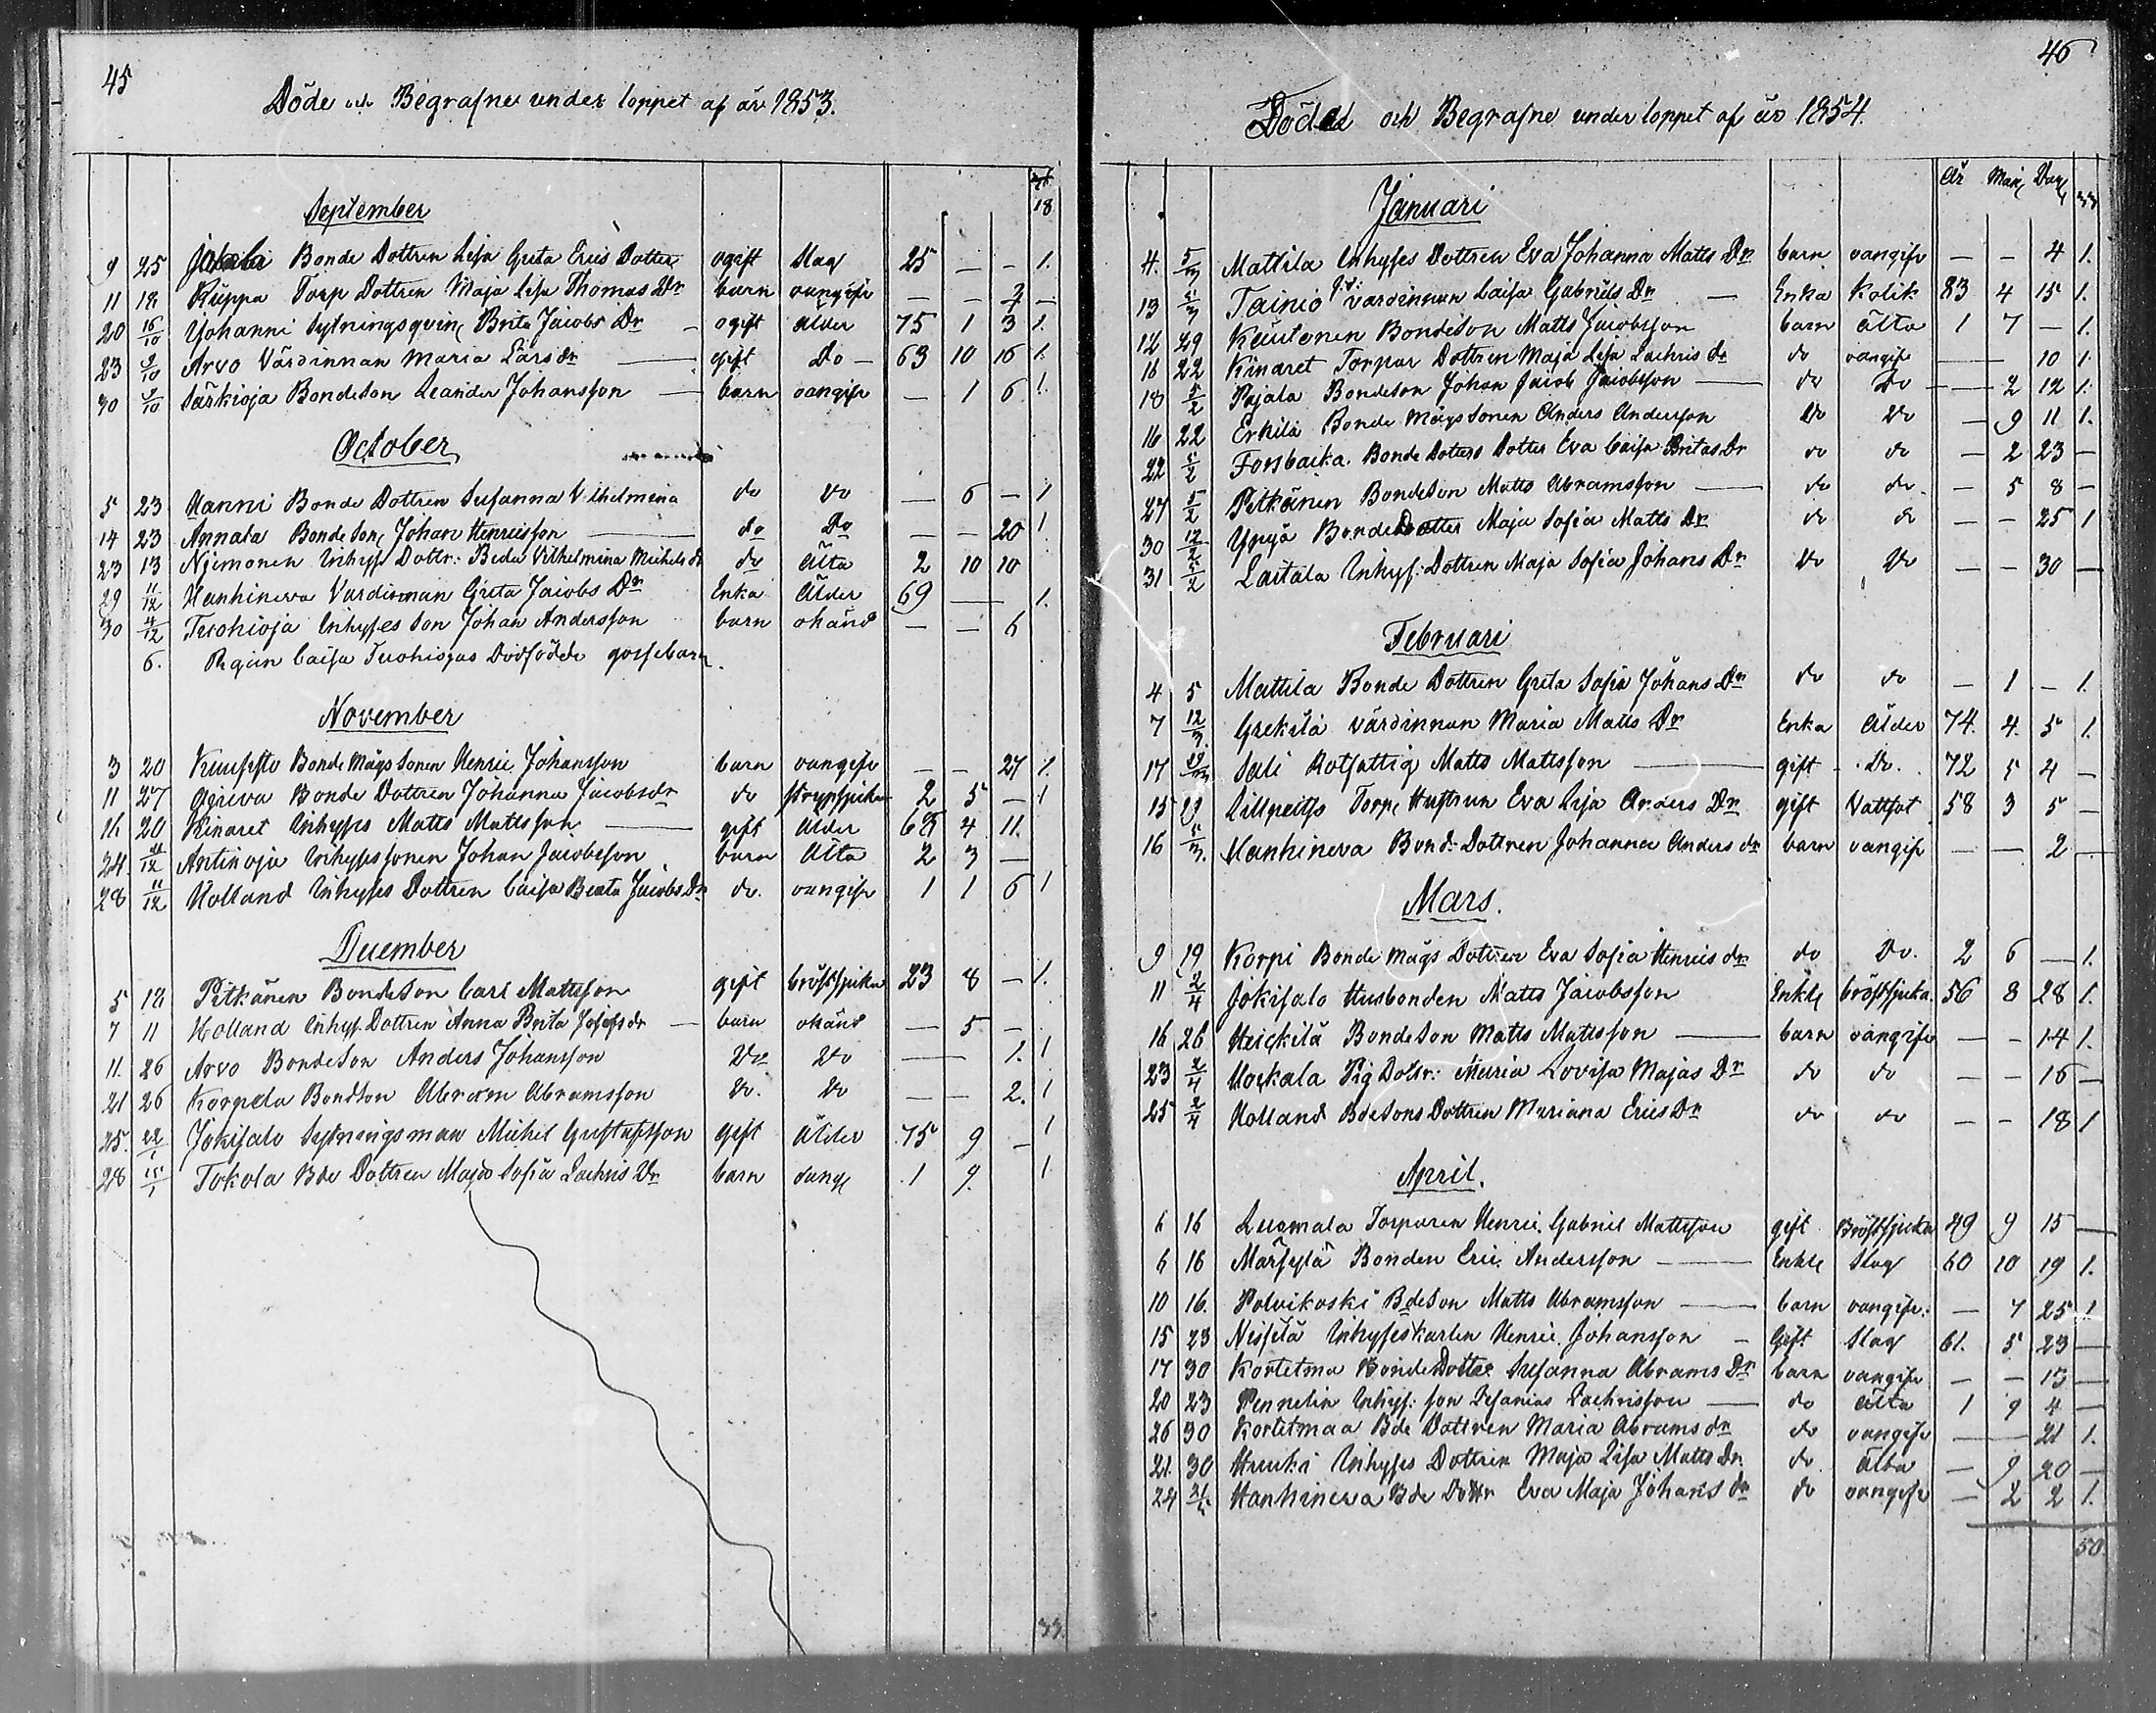 45
Döde och Begrafne under loppet af år 1853.
18
September
9 25 Jakobi Bonde Dottren Lisa Greta Erics Dotter ogift Slag 25 — — 1.
11 18 Ruppa Torp Dottren Maja Lisa Thomas Dr barn oangifv — — —
20 16/10 Yohanni Sytningsqvin Brita Jacobs Dr ogift ålder 75 1 3 1.
23 9/10 Arvo Värdinnan Maria Lars dr gift Do 63 10 16 1.
30 9/10 Särkioja Bondeson Leander Johansson barn oangifv — 1 6 1.
October
5 23 Nanni Bonde Dottren Susanna Vilhelmina do do — 6 — 1
14 23 Annala Bondeson Johan Henricsson do Do — — 20 1
23 13 Njemonen Inhyss Dottr: Beda Vilhelmina Michels dr do Älta 2 10 10
29 11/12 Hanhineva Värdinnan Greta Jacobs Dr Enka Ålder 69 — 1.
30 4/12 Tuohioja Inhyses Son Johan Andersson barn okänd — — 6
6. Pigan Caisa Tuohiojas Dödfödde gossebarn.
November
3 20 Bonde Mågs Sonen Henric Johansson barn oangifv — — 27 1.
11 27 Bonde Dottren Johanna Jacobsdr do strypsjuka 2 5 — 1
16 20 Kinaret Inhyses Matts Mattsson gift Ålder 68 4 11.
24 Antinoja Inhysessonen Johan Jacobsson barn Älta 2 3 —
28 11/12 Holland Inhyses Dottren Caisa Beata Jacobs Dr do. oangifv 1 1 6 1
December
5 18 Pitkänen Bondeson Carl Mattsson gift bröstsjuka 23 8 — 1.
7 11 Holland Inhys. Dottren Anna Brita Josefs dr barn okänd — 5 —
11. 26 Arvo Bondeson Anders Johansson Do do — 1. 1
21 26 Korpela Bondson Abram Abramsson Do. do — — 2. 1
25. 22/1 Jokisalo Sytningsman Michel Gustafsson gift Ålder 75 9 — 1
28 15/1 Tokola Bde Dottren Maja Sofia Zachris Dr barn oang 1 9. 1
33.
46
Döde och Begrafne under loppet af år 1854.
År Mån Dar
Januari
4. 5/3 Mattila Inhyses Dottren Eva Johanna Matts Dr barn oangifv — — 4 1.
13 5/3 Tainio värdinnan Caisa Gabriels Dr — Enka Kolik 83 4 15 1.
12 29 Kentonen Bondeson Matts Jacobsson barn älta 1 7 — 1.
16 22 Kinaret Torpar Dottren Maja Lisa Zachris dr do oangifv — 10 1
18 5/2 Pajala Bondeson Johan Jacob Jacobsson do Do — 2 12 1.
16 22 Erkilä Bonde Mågs Sonen Anders Andersson Do Do — 9 11 1.
22 5/2 Forsbacka Bonde Dotters Dotter Eva Caisa Britas Dr do do — 2 23 —
27 5/2 Pitkänen Bondeson Matts Abramsson do do. — 5 8 —
30 12/2 Ypyä Bonde Dotter Maja Sofia Matts Dr do do — — 25 1
31 5/2 Laitala Inhys: Dottren Maja Sofia Johans Dr Do Do — — 30 —
Februari
4 5 Mattila Bonde Dottren Greta Sofia Johans Dr do do — 1 — 1.
7 12/3. Grekilä värdinnan Maria Matts Dr Enka Ålder 74. 4. 5 1.
17 Sali Rotfattig Matts Mattsson gift Do. 72 5 4 —
15 19 Lillpeitso Torp. Hustrun Eva Lisa Anders Dr gift Vattsot 58 3 5 —
16 5/3. Hanhineva Bond Dottren Johanna Anders dr barn oangifv — — 2 —
Mars.
9 19 Korpi Bonde Mågs Dottren Eva Sofia Henrics dr do Do. 2 6 — 1.
11 2/4 Jokisalo Husbonden Matts Jacobsson Enkl. bröstsjuka. 56 8 28 1.
16 26 Heickilä Bondeson Matts Mattsson barn oangifv — — 14 1.
23 2/4 Uockala Pig Dottr: Maria Lovisa Majas Dr do do — — 16 —
25 2/4 Holland Bdesons Dottren Mariana Erics Dr do do — — 18 1
April.
6 16 Luomala Torparen Henric Gabriel Mattsson gift Bröstsjuka 49 9 15 —
6 16 Märsylä Bonden Eric Andersson Enkl Slag 60 10 19 1.
10 16. Polvikoski Bdeson Matts Abramsson barn oangifv: — 7 25 1
15 23 Nissilä Inhyseskarlen Henric Johansson — Gift. Slag 61. 5 23 —
17 30 Kortetma Bonde Dotter Susanna Abrams Dr barn oangifv — — 13 —
20 23 Pennelin Inhys: son Zefanias Zachrisson do älta 1 9 4 —
26 30 Kortetmaa Bde Dottren Maria Abrams dr do oangifv — — 21 1.
21. 30 Huuki Inhyses Dottren Maja Lisa Matts Dr. do älta — 9 20 —
24 Hanhineva Bde Dottr Eva Maja Johans dr do oangifv — 2 2 1.
50.